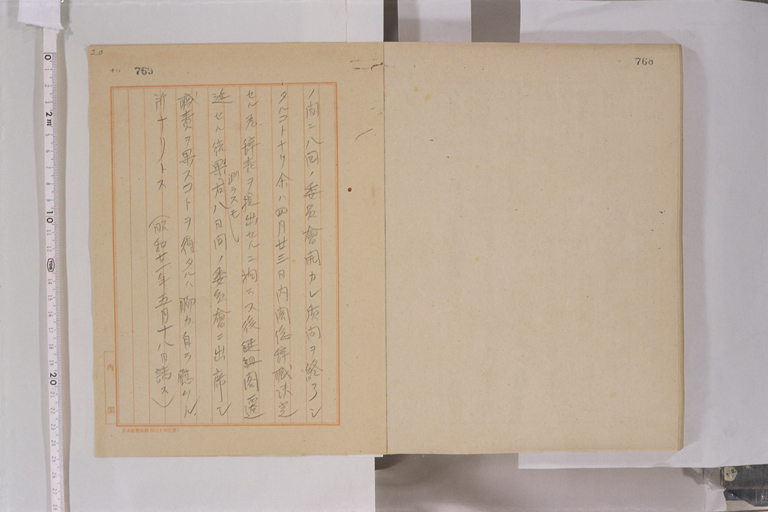 760
769
20
ノ間ニ八回ノ委員會開カレ質問ヲ終了シ
タルコトナリ余ハ四月廿三日内閣総辞職決定
セル為辞表ヲ提出セルニ拘ラス後継組閣遷
延セル結果図ラスモ右八日間ノ委員會ニ出席シ
職責ヲ果スコトヲ得タルハ聊カ自ラ慰ムル
所ナリトス (昭和廿一年五月十八日誌ス)
内閣